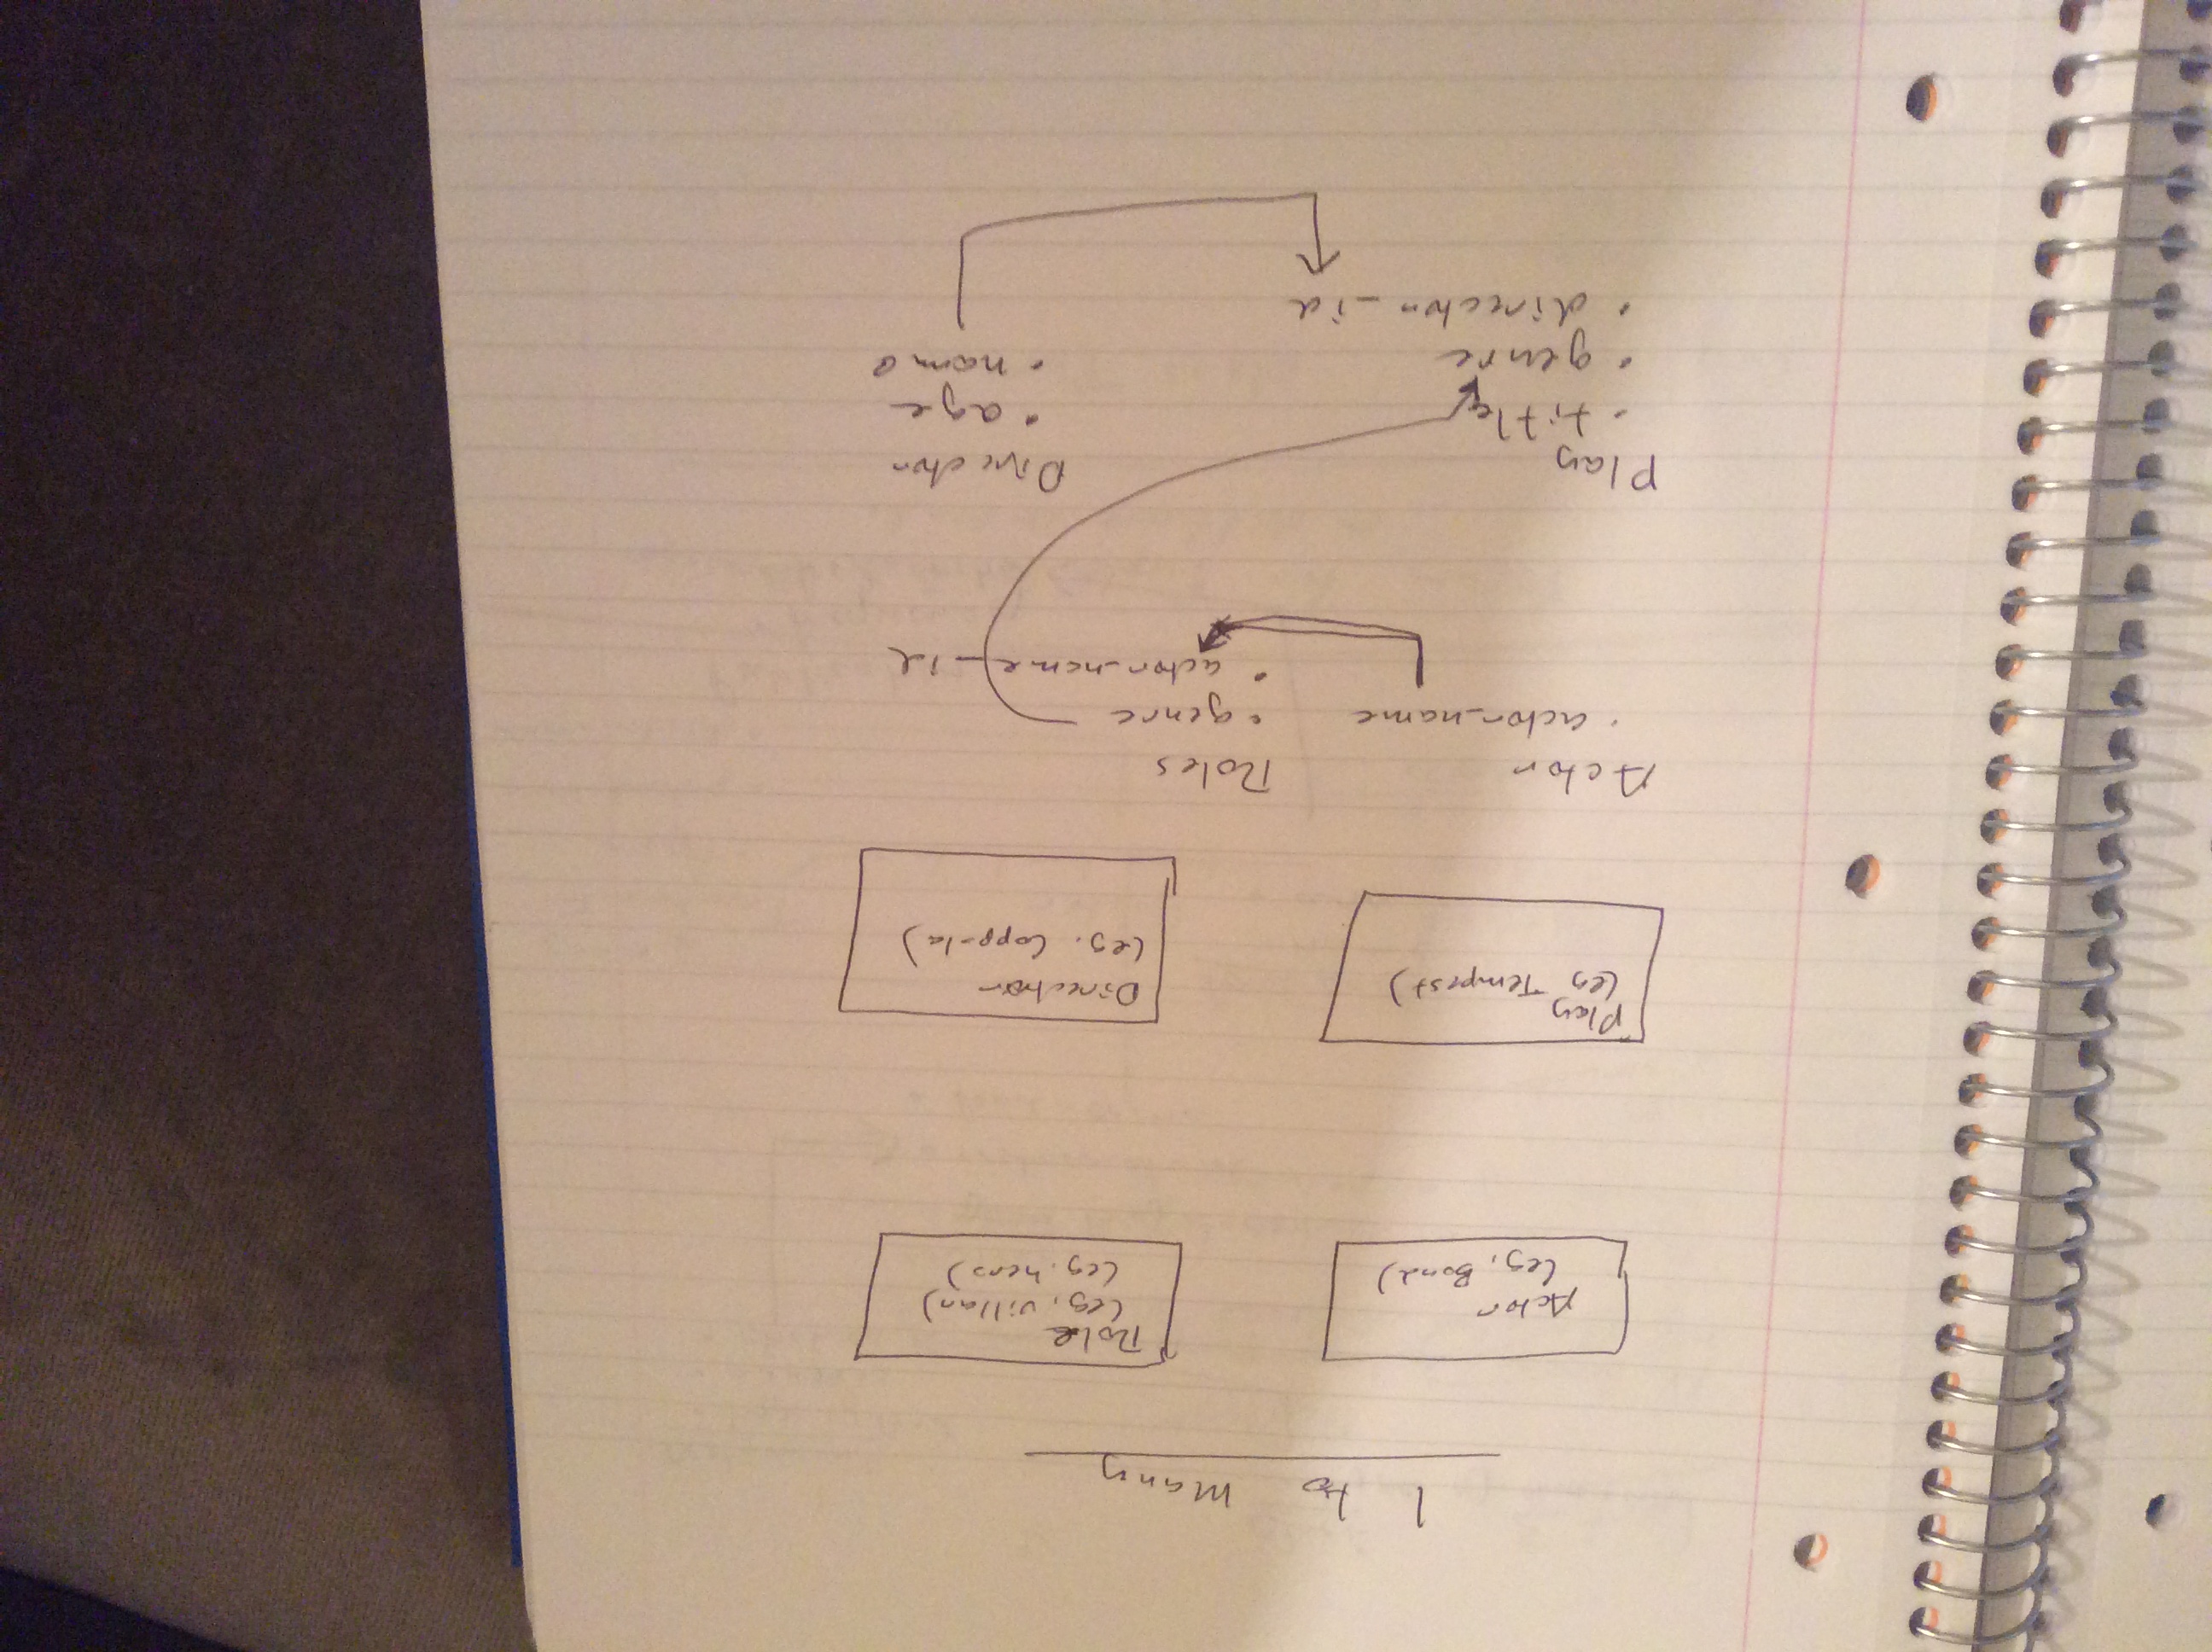 1 to Many
Actor
(eg, Bond)
Role
(eg, villan)
(eg. hero)
Play
(eg Tempest)
Director
(eg. Coppola)
Actor
• actor_name
Roles
• genre
• actor_name_id
Play
• title
• genre
• director_id
Director
• age
• name